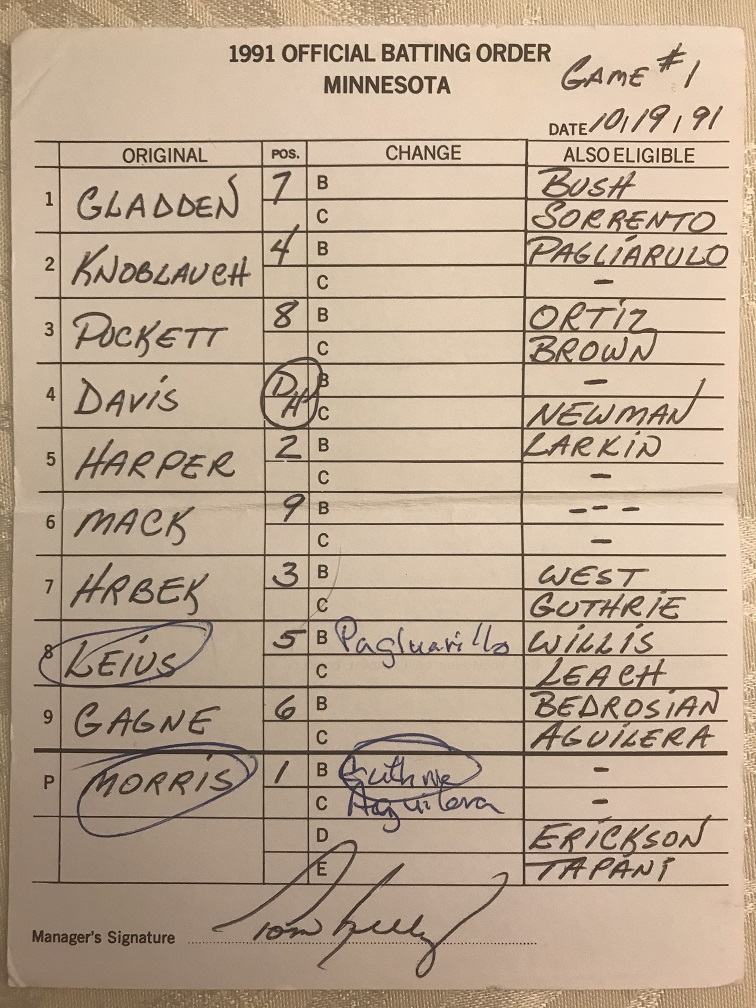 1991 OFFICIAL BATTING ORDER
MINNESOTA
GAME #1
DATE 10/19/91
ORIGINAL POS. CHANGE ALSO ELIGIBLE
1 GLADDEN 7 B BUSH
C SORRENTO
2 KNOBLAUCH 4 B PAGLIARULO
C -
3 PUCKETT 8 B ORTIZ
C BROWN
4 DAVIS DH B -
C NEWMAN
5 HARPER 2 B LARKIN
C -
6 MACK 9 B ---
C -
7 HRBEK 3 B WEST
C GUTHRIE
8 LEIUS 5 B Pagluarillo WILLIS
C LEACH
9 GAGNE 6 B BEDROSIAN
C AGUILERA
P MORRIS 1 B Guthrie -
C Aguilera -
D ERICKSON
E TAPANI
Manager's Signature Tom Kelly